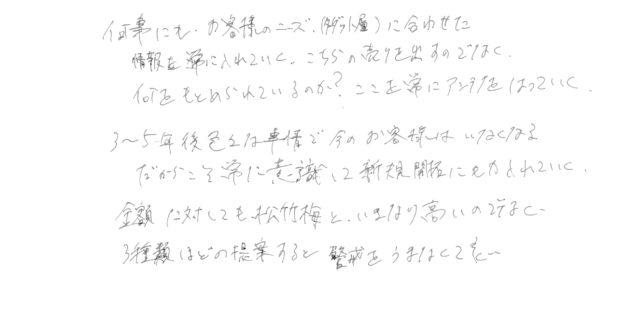 何事にも、お客様のニーズ、(ターゲット層)に合わせた
情報を常に入れていく、こちらの売りを出すのでなく、
何をもとめられているのか？ここを常にアンテナをはっていく、
3〜5年後色々な事情で今のお客様はいなくなる
だからこそ常に意識して新規開拓にも力を入れていく、
金額に対しても松竹梅と、いきなり高いのでなく
3種類ほどの提案すると警戒をうまなくてすむ